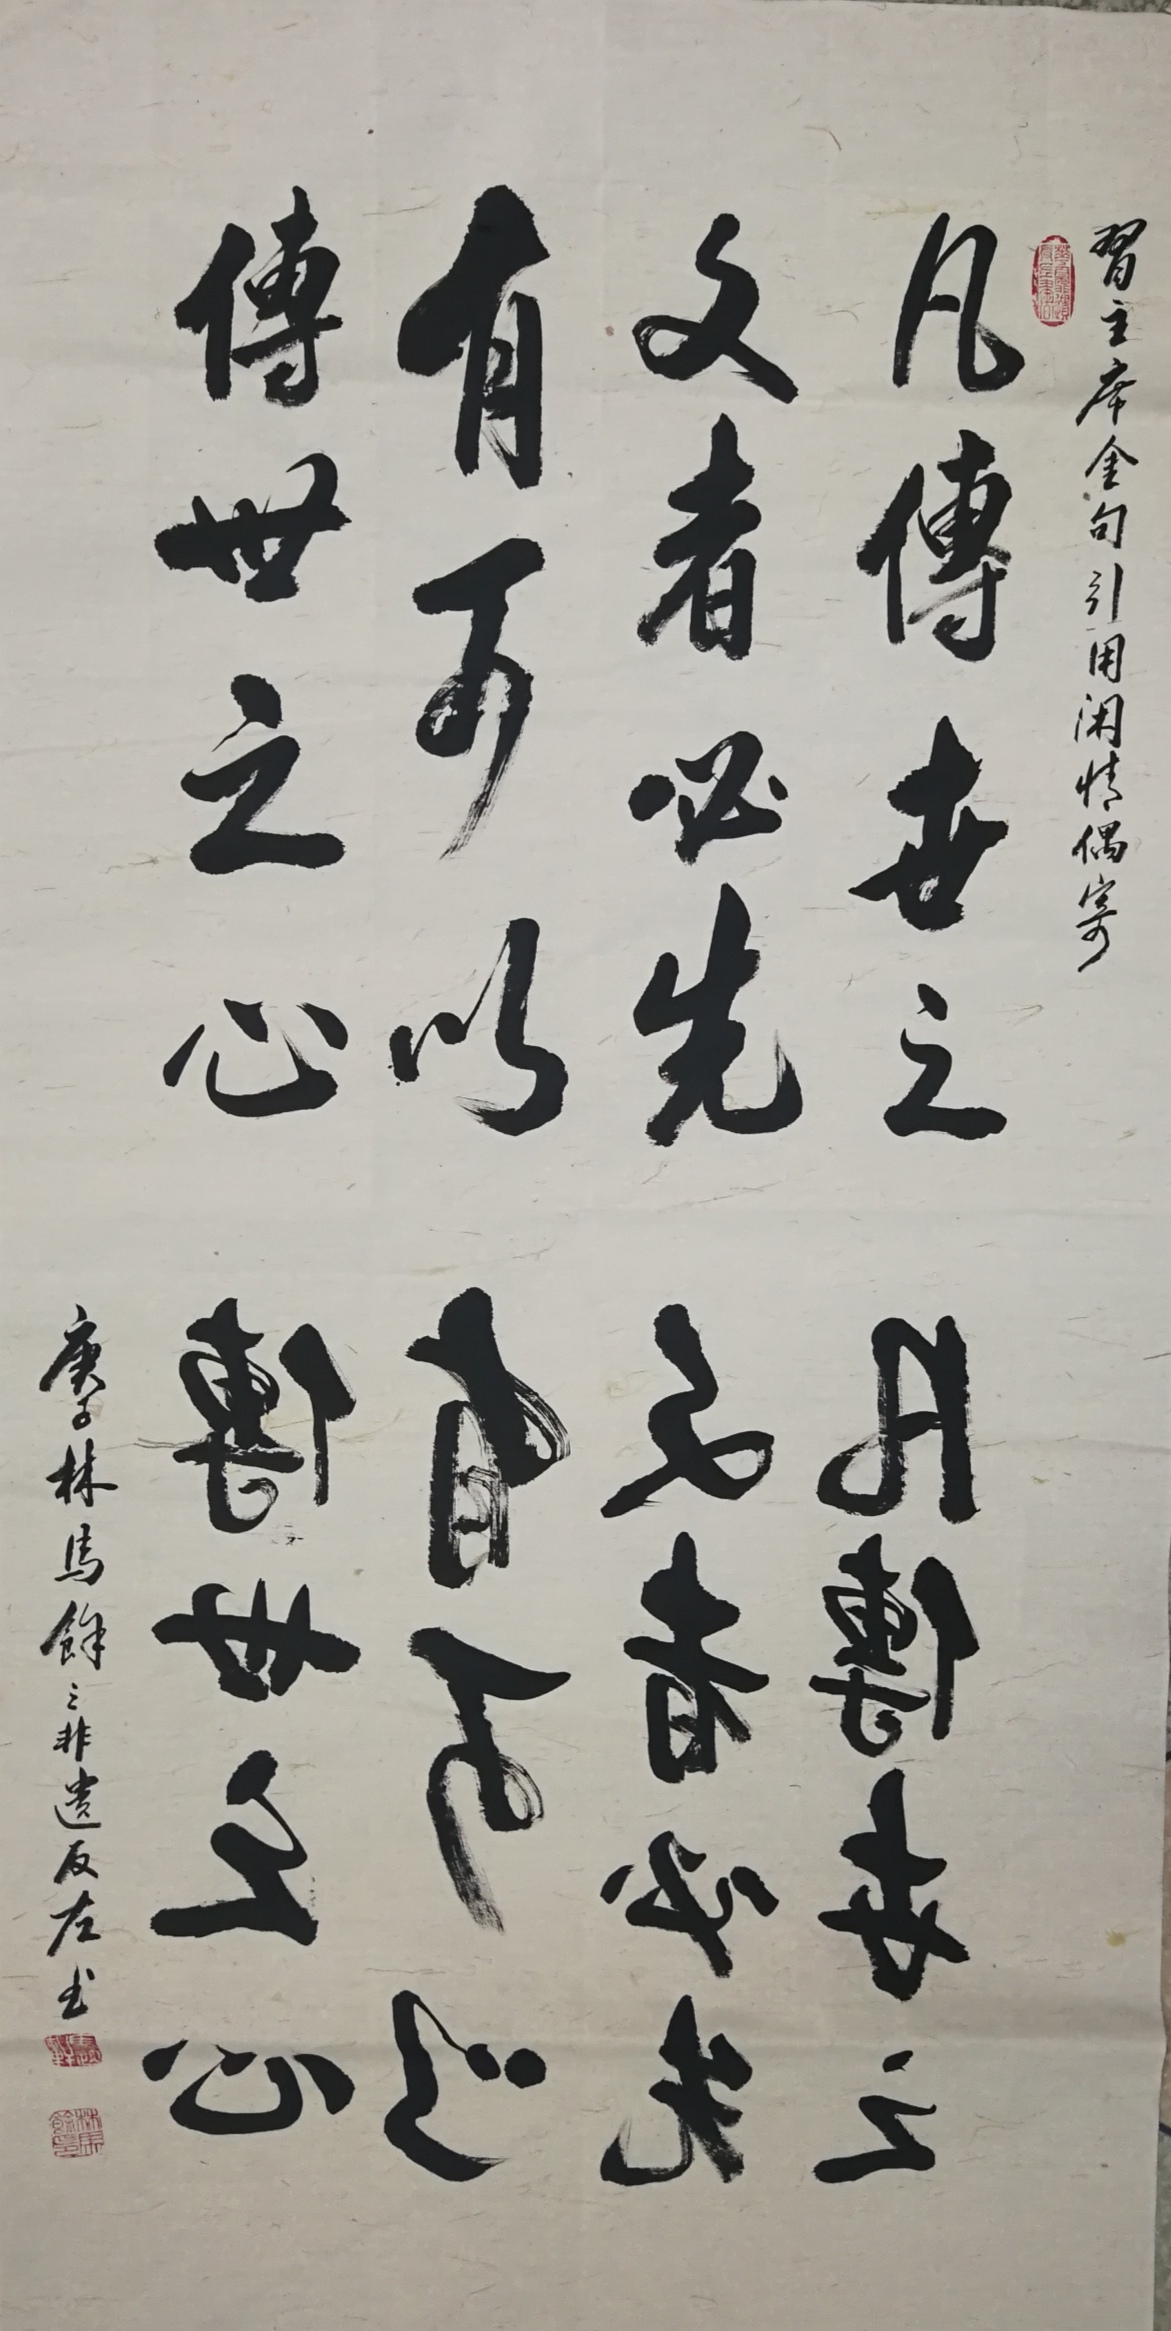 習主席金句引用闲情偶寄
凡傳世之
文者必先
有可以
傳世之心
凡傳世之
文者必先
有可以
傳世之心
庚子林馬餘之非遗反左书